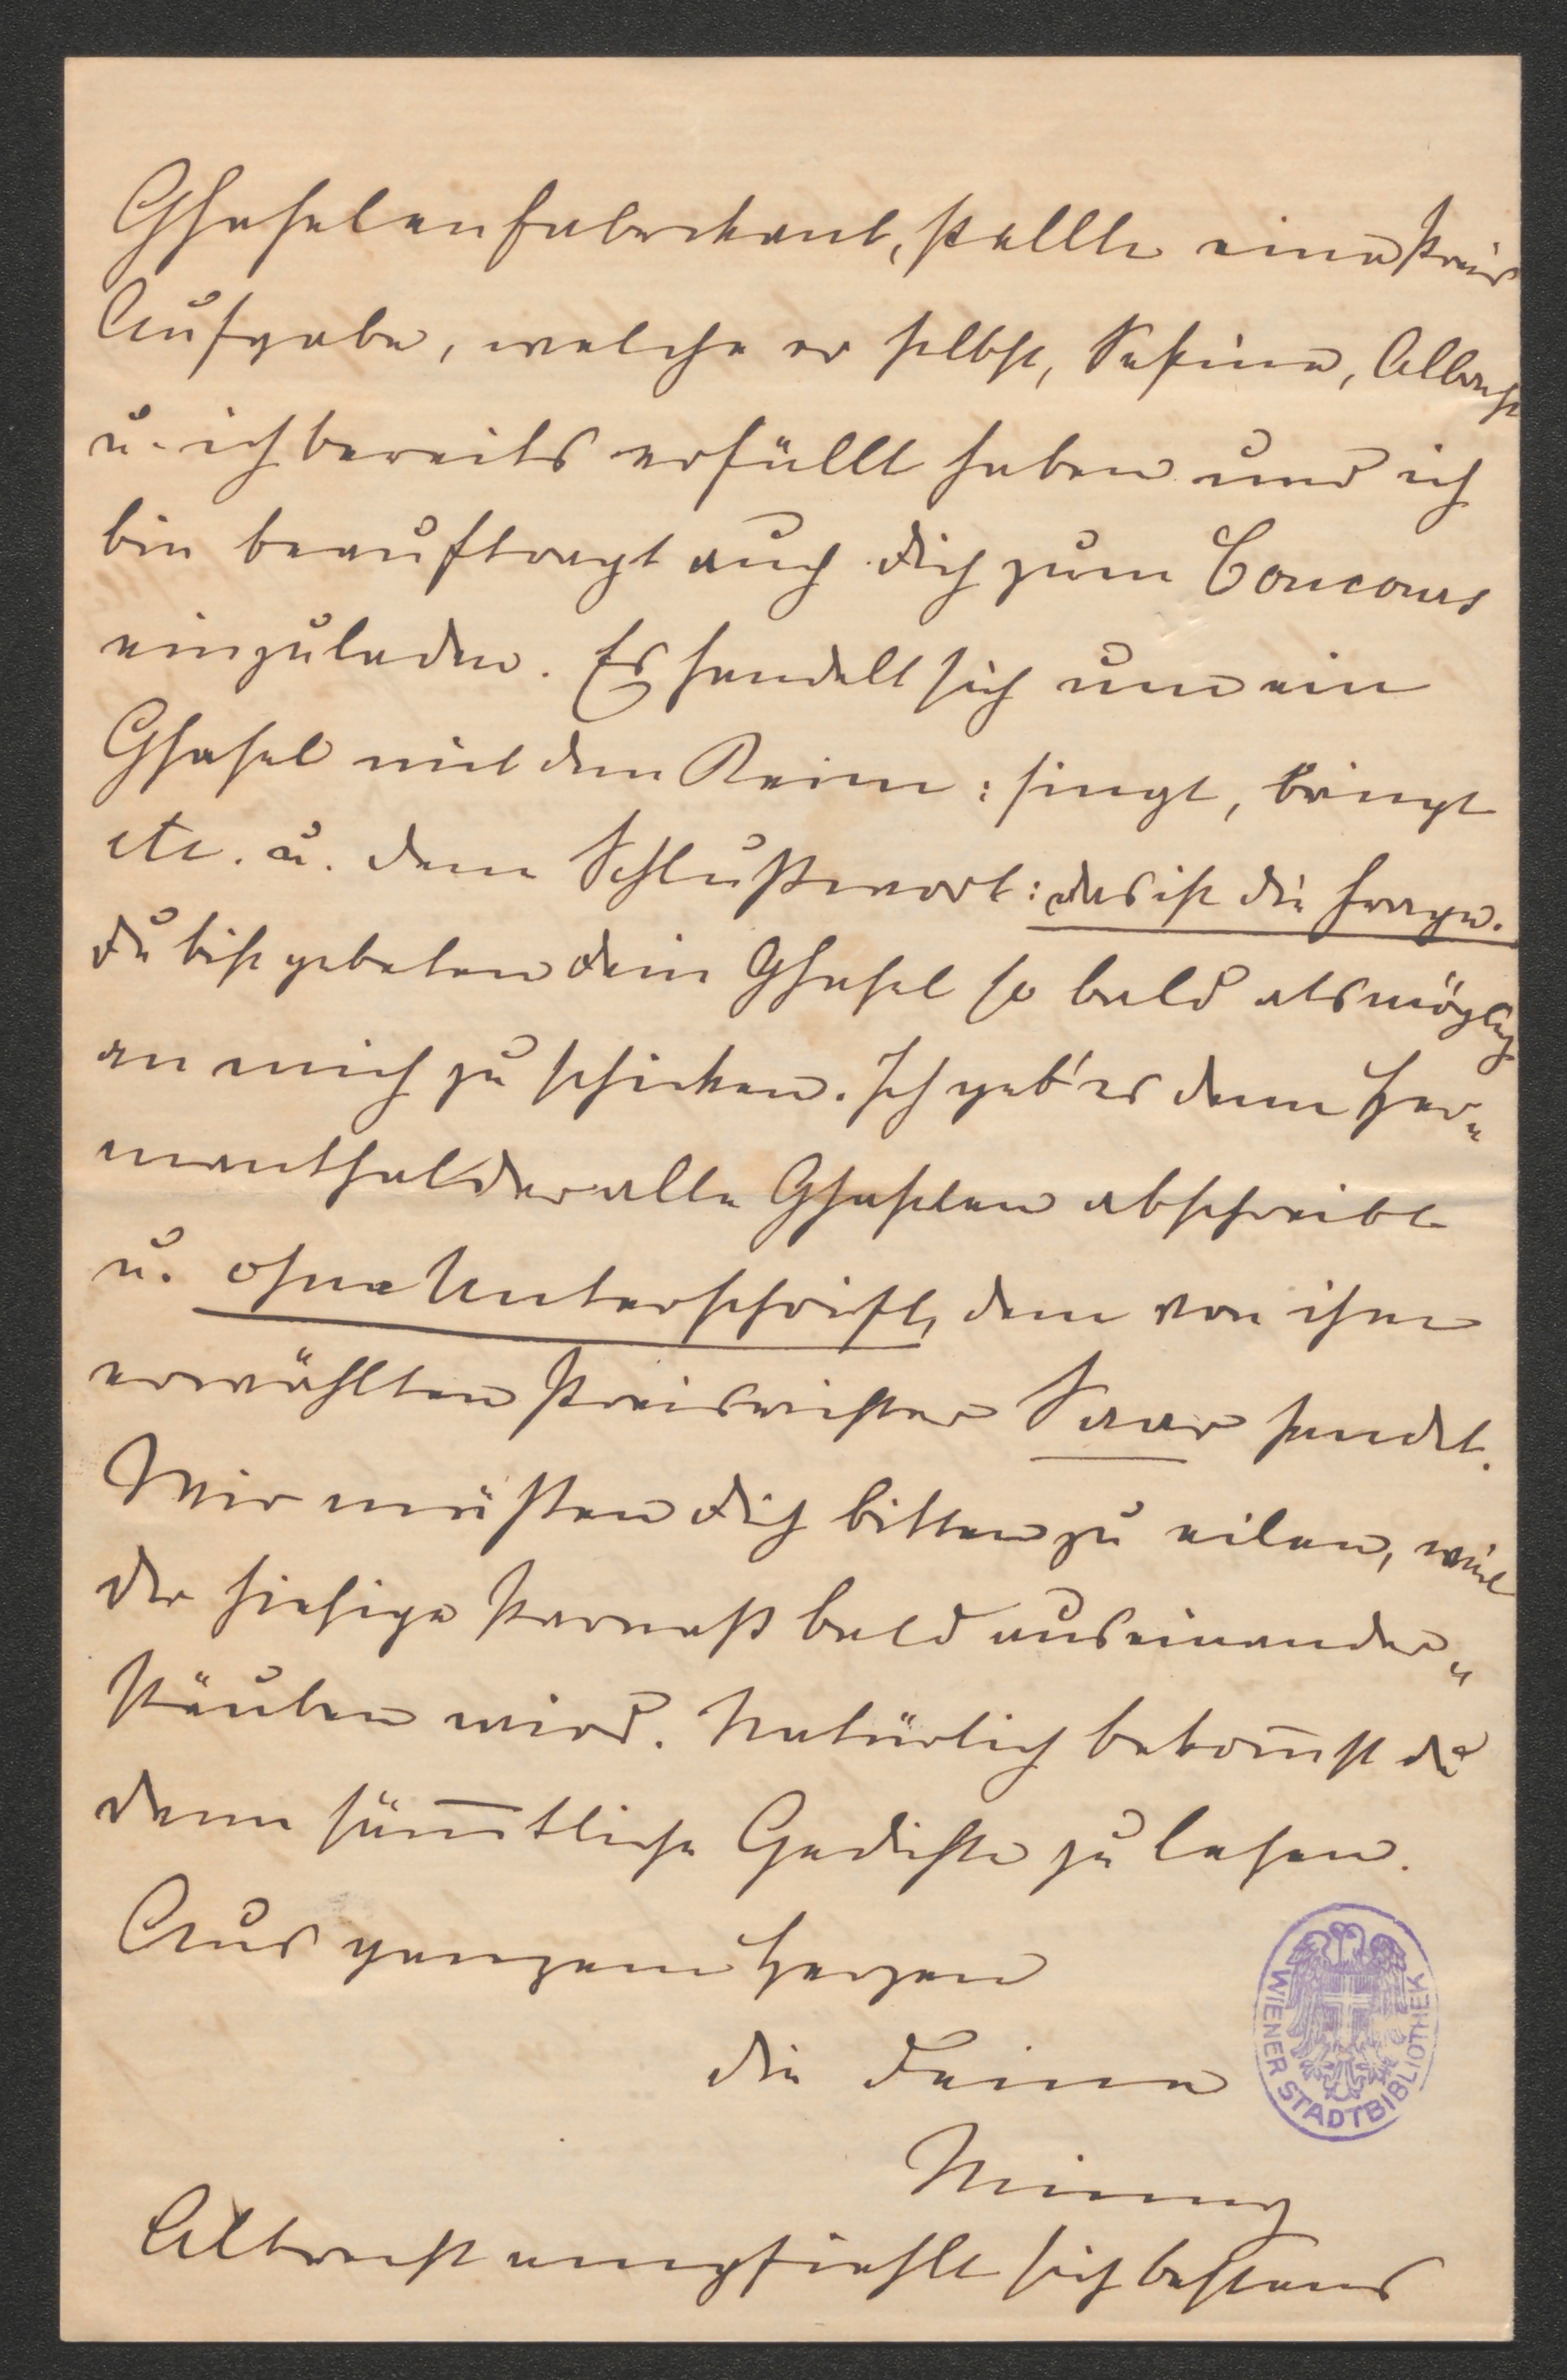 Ghaselenfabrikant, stellte eine Preis
Aufgabe, welche er selbst, Sefine, Albrecht
u. ich bereits erfüllt haben und ich
bin beauftragt auch dich zum Concours
einzuladen. Es handelt sich um ein
Ghasel mit dem Reim: singt, bringt
etc. u. dem Schlußwort: das ist die Frage.
Du bist gebeten dein Ghasel so bald als möglich
an mich zu schicken. Ich geb's dem Her„
mansthal der alle Ghaselen abschreibt
u. ohne Unterschrift, dem von ihm
erwählten Preisrichter Saar sendet.
Wir müßten dich bitten zu eilen, weil
der hiesige Parnaß bald auseinander„
stäuben wird. Natürlich bekom̅st du
dann säm̅tliche Gedichte zu lesen.
Aus ganzem Herzen
die Deine
Minny
Albrecht empfiehlt sich bestens
WIENER STADTBIBLIOTHEK